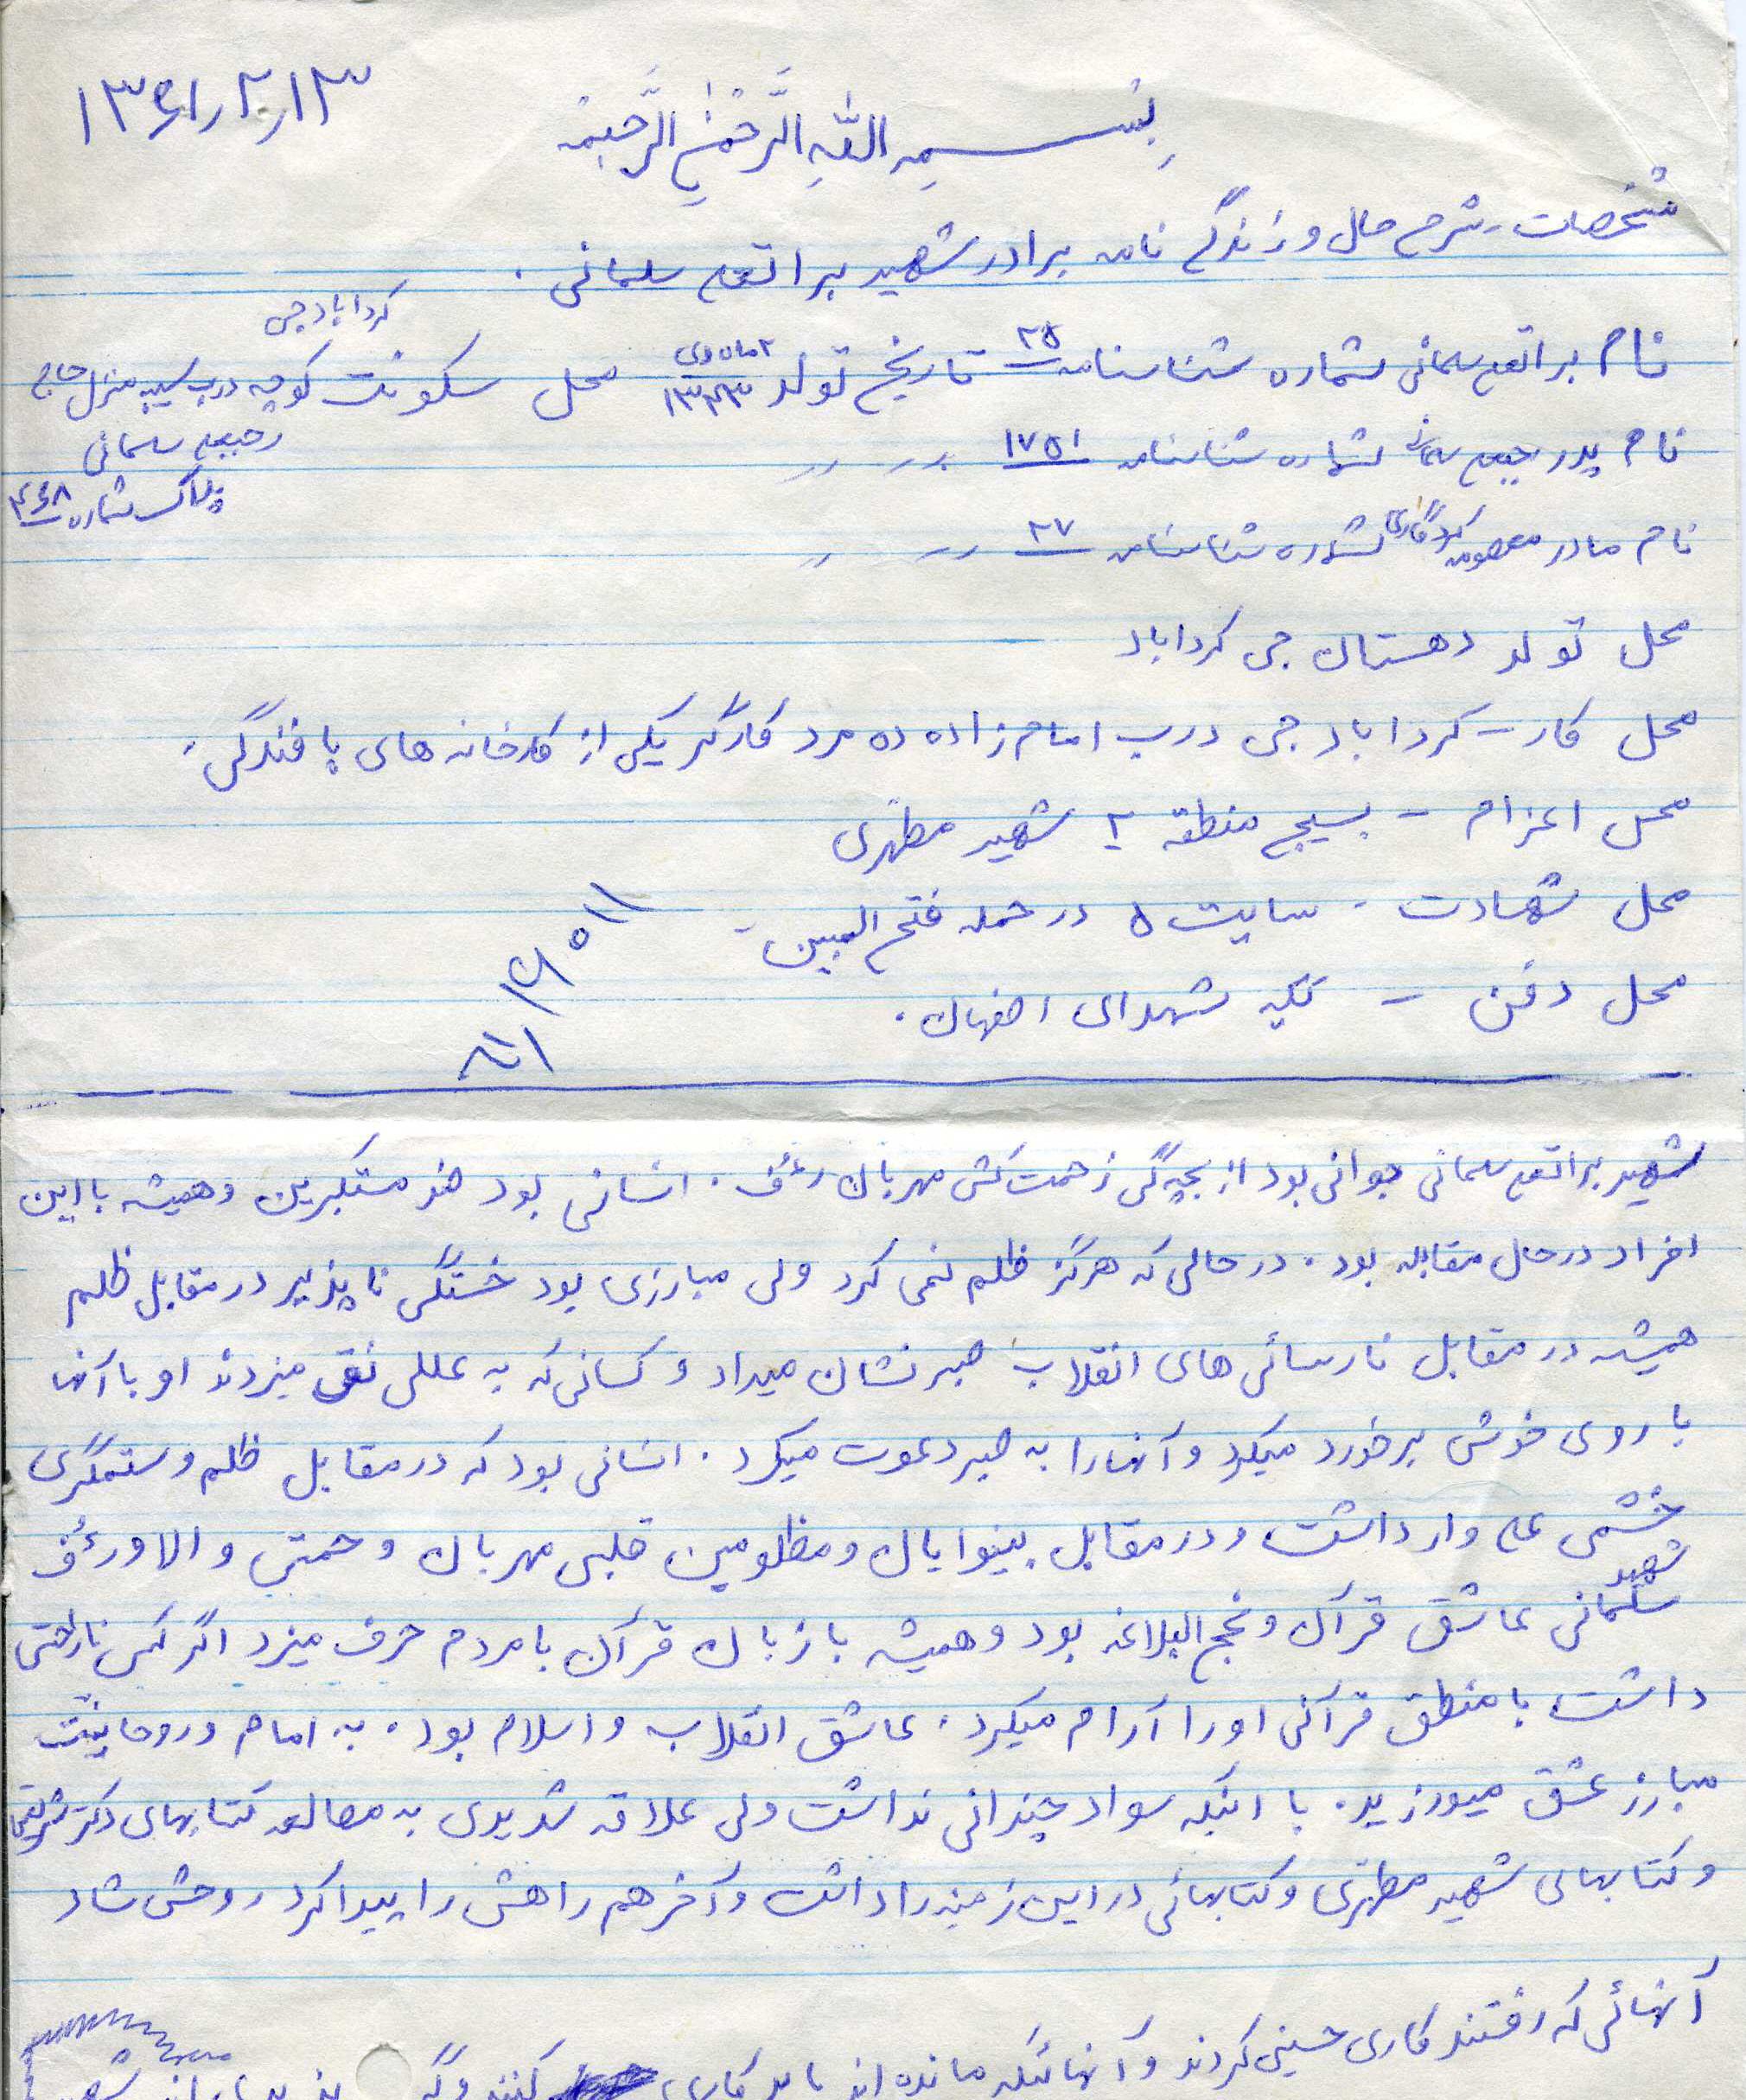 ۱۳۶۱٫۲٫۱۳
بِسمِ اللّهِ الرَّحْمٰنِ الرَّحیمْ
مشخصات - شرح حال و زندگی نامه برادر شهید براتعلی سلمانی .
کردابادجی
نام براتعلی سلمانی شماره شناسنامه ۲۵ تاریخ تولد ۲ ماه دی ۱۳۴۳ محل سکونت کوچه درب سیبه منزل حاج
رجبعلی سلمانی
پلاک شماره ۴۶۸
نام پدر رجبعلی سلمانی شماره شناسنامه ۱۷۵۱ ״ ״ ״
نام مادر معصومه شماره شناسنامه ۲۷ ״ ״ ״
محل تولد دهستان جی کرداباد
محل کار - کرداباد جی درب امام زاده ده مرد کارگر یکی از کارخانه های بافندگی .
محل اعزام - بسیج منطقه ۲ شهید مطهری
محل شهادت - سایت ۵ در حمله فتح المبین -
محل دفن - تکیه شهدای اصفهان .
شهید براتعلی سلمانی جوانی بود از بچه گی زحمت کش مهربان رئوف . انسانی بود ضد مستکبرین و همیشه با این
افراد در حال مقابله بود . در حالی که هرگز ظلم نمی کرد ولی مبارزی بود خستگی ناپذیر در مقابل ظلم
همیشه در مقابل نارسائی های انقلاب صبر نشان میداد و کسانی که به عللی نق میزدند او با آنها
با روی خوش برخورد میکرد و آنها را به صبر دعوت میکرد . انسانی بود که در مقابل ظلم و ستمگری
خشمی علی وار داشت و در مقابل بینوایان و مظلومین قلبی مهربان و همتی والا و رئوف
شهید
سلمانی عاشق قرآن و نهج البلاغه بود و همیشه با زبان قرآن با مردم حرف میزد اگر کسی ناراحتی
داشت با منطق قرآنی او را آرام میکرد . عاشق انقلاب و اسلام بود . به امام و روحانیّت
مبارز عشق میورزید . با اینکه سواد چندانی نداشت ولی علاقه شدیدی به مطالعه کتابهای دکتر شریعتی
و کتابهای شهید مطهری و کتابهائی در این زمینه را داشت و آخر هم راهش را پیدا کرد روحش شاد
آنهائی که رفتند کاری حسینی کردند و آنهائیکه مانده اند باید کاری کنند وگرنه